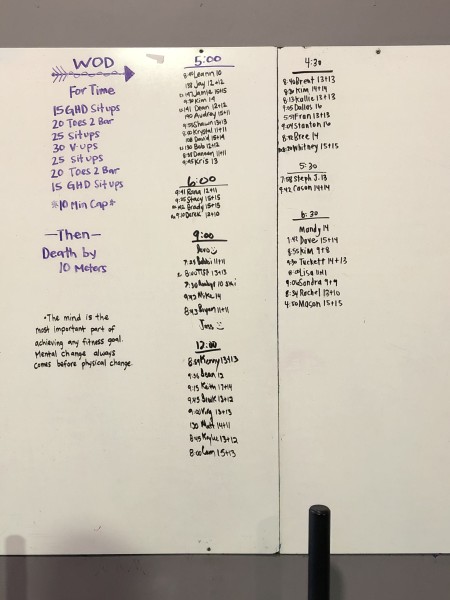 WOD
For Time
15 GHD Situps
20 Toes 2 Bar
25 Situps
30 V-ups
25 Situps
20 Toes 2 Bar
15 GHD Situps
*10 Min Cap*
—Then—
Death by
10 Meters
•The mind is the
most important part of
achieving any fitness goal.
Mental change always
comes before physical change.
5:00
Leann 10
Jay 12+12
Jamie 15+5
9:30 Kim 14
Dean 12+12
Audrey 15+11
Shawn 13+13
Krystal 11+11
David 15+14
Bob 12+2
Dannen 11+11
Kris 13
6:00
9:41 Rana 12+11
9:25 Stacy 15+15
Brady 15+13
Derek 12+10
9:00
7:29 Bobbi 11+11
8:00 Tiff 13+13
7:30
9:43 Mike 14
8:43 Bryan 11+11
Jess
12:00
8:59 Kenny 13+13
9:36 Sean 12
9:15 Keith 17+14
9:45 13+12
9:00 13+13
Matt 14+11
8:45 Kaylee 13+12
8:00 Cam 15+13
4:30
8:40 Brent 13+13
8:30 Kim 14+14
8:13 Kallie 13+13
9:05 Dallas 16
5:59 Fran 13+13
9:04 Stanton 16
Bree 14
Whitney 15+15
5:30
7:58 Steph J. 13
9:42 Cacon 14+14
6:30
Mandy 14
7:42 Dave 15+14
8:55 Kim 9+8
9:30 Tuckett 14+13
8:00 Lisa 11+1
9:00 Sandra 9+9
8:34 Rachel 13+10
4:50 Mason 15+15